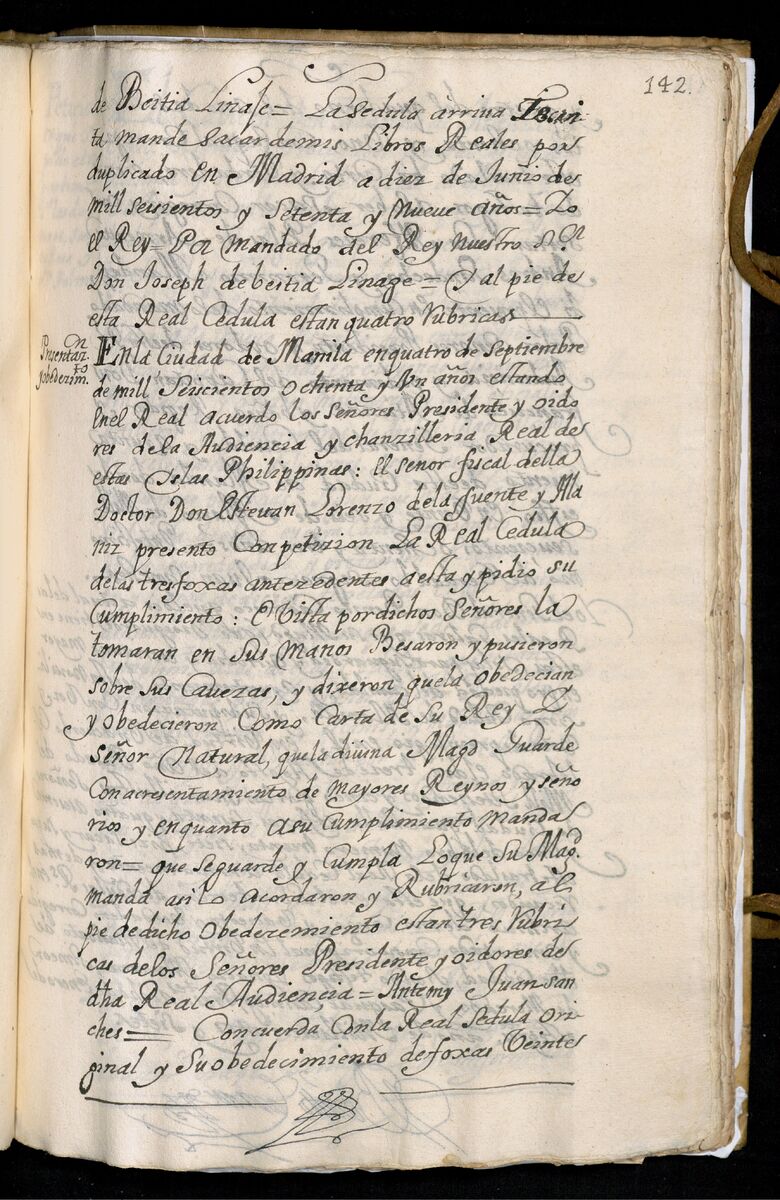 142.
de Beitia Linaje = La sedula arriua Escri-
ta mande sacar demis Libros Reales por
duplicado en Madrid a diez de Junio de
mill seisientos y Setenta y Nueve años = Yo
el Rey = Por mandado del Rey Nuestro S.or
Don Joseph debeitia Linage = Y al pie de
esta Real Cedula estan quatro Rubricas
Presentaz.on
y obedezim.to
Enla Ciudad de Manila enquatro de Septiembre
de mill Seiscientos ochenta y Un años estando
enel Real acuerdo los Señores Presidente y oido
res dela Audiencia y chanzilleria Real de
estas Yslas Philippinas: el señor fiscal della
Doctor Don Esteuan Lorenzo dela fuente y Ala
niz presento Conpetizion La Real Cedula
delas tres foxas antezedentes aesta y pidio su
Cumplimiento: E Vista por dichos Señores la
tomaran en sus manos Besaron y pusieron
sobre sus Cavezas, y dixeron quela obedecian
y obedecieron Como Carta de Su Rey Y
Señor Natural, quela diuina Magd Guarde
Con acresentamiento de mayores Reynos y seño
rios y enquanto asu Cumplimiento manda
ron = que seguarde y Cumpla Loque Su Magd.
manda asi lo acordaron y Rubricaron, al
pie dedicho obedezemiento estan tres Rubri
cas delos Señores Presidente y oidores de
dha Real Audiencia = Antemy Juan san
ches = Concuerda Conla Real Sedula ori-
ginal y Su obedecimiento defoxas Veinte